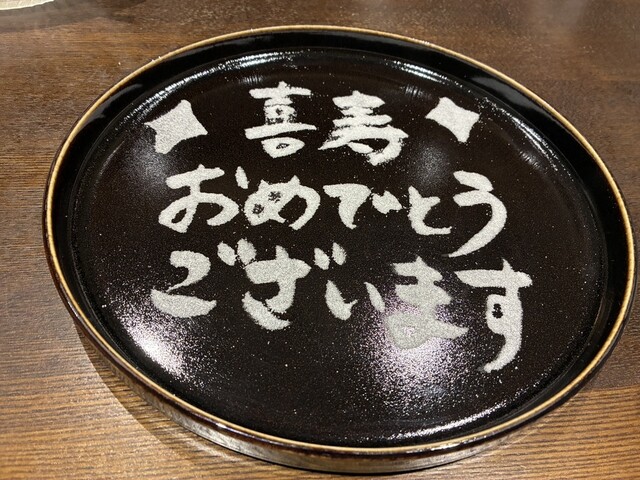 喜寿
おめでとう
ございます